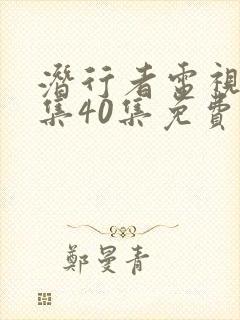 潛行者電視
集40集免費
鄭曼青